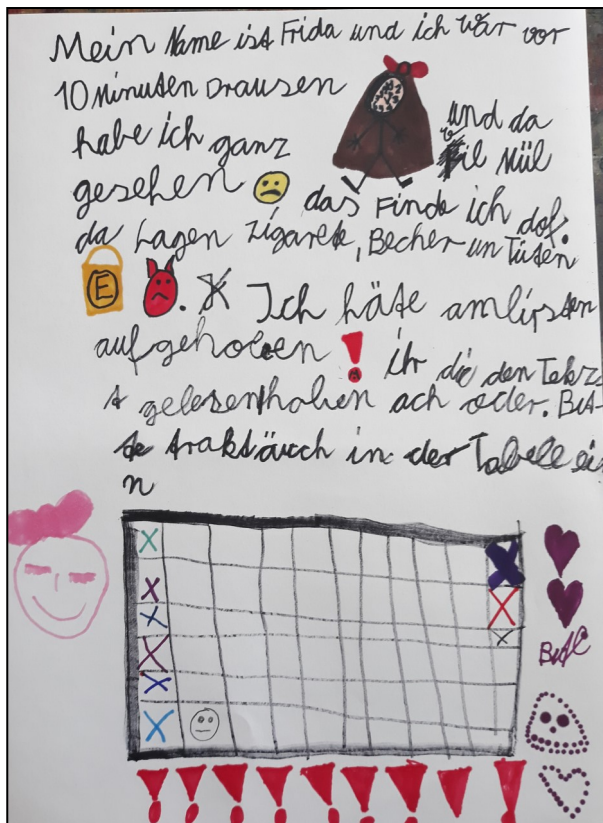 Mein Name ist Frida und ich war vor
10 Minuten Drausen und da
habe ich ganz fil Mül
gesehen das Finde ich dof.
da Lagen Zigarete, Becher un Tüten
E
Ich häte amlipsten
aufgehoben ! ihr die den Tekz
t gelesenhaben ach oder. Bit-
te traktäuch in der Tabele ei
n
Bitte